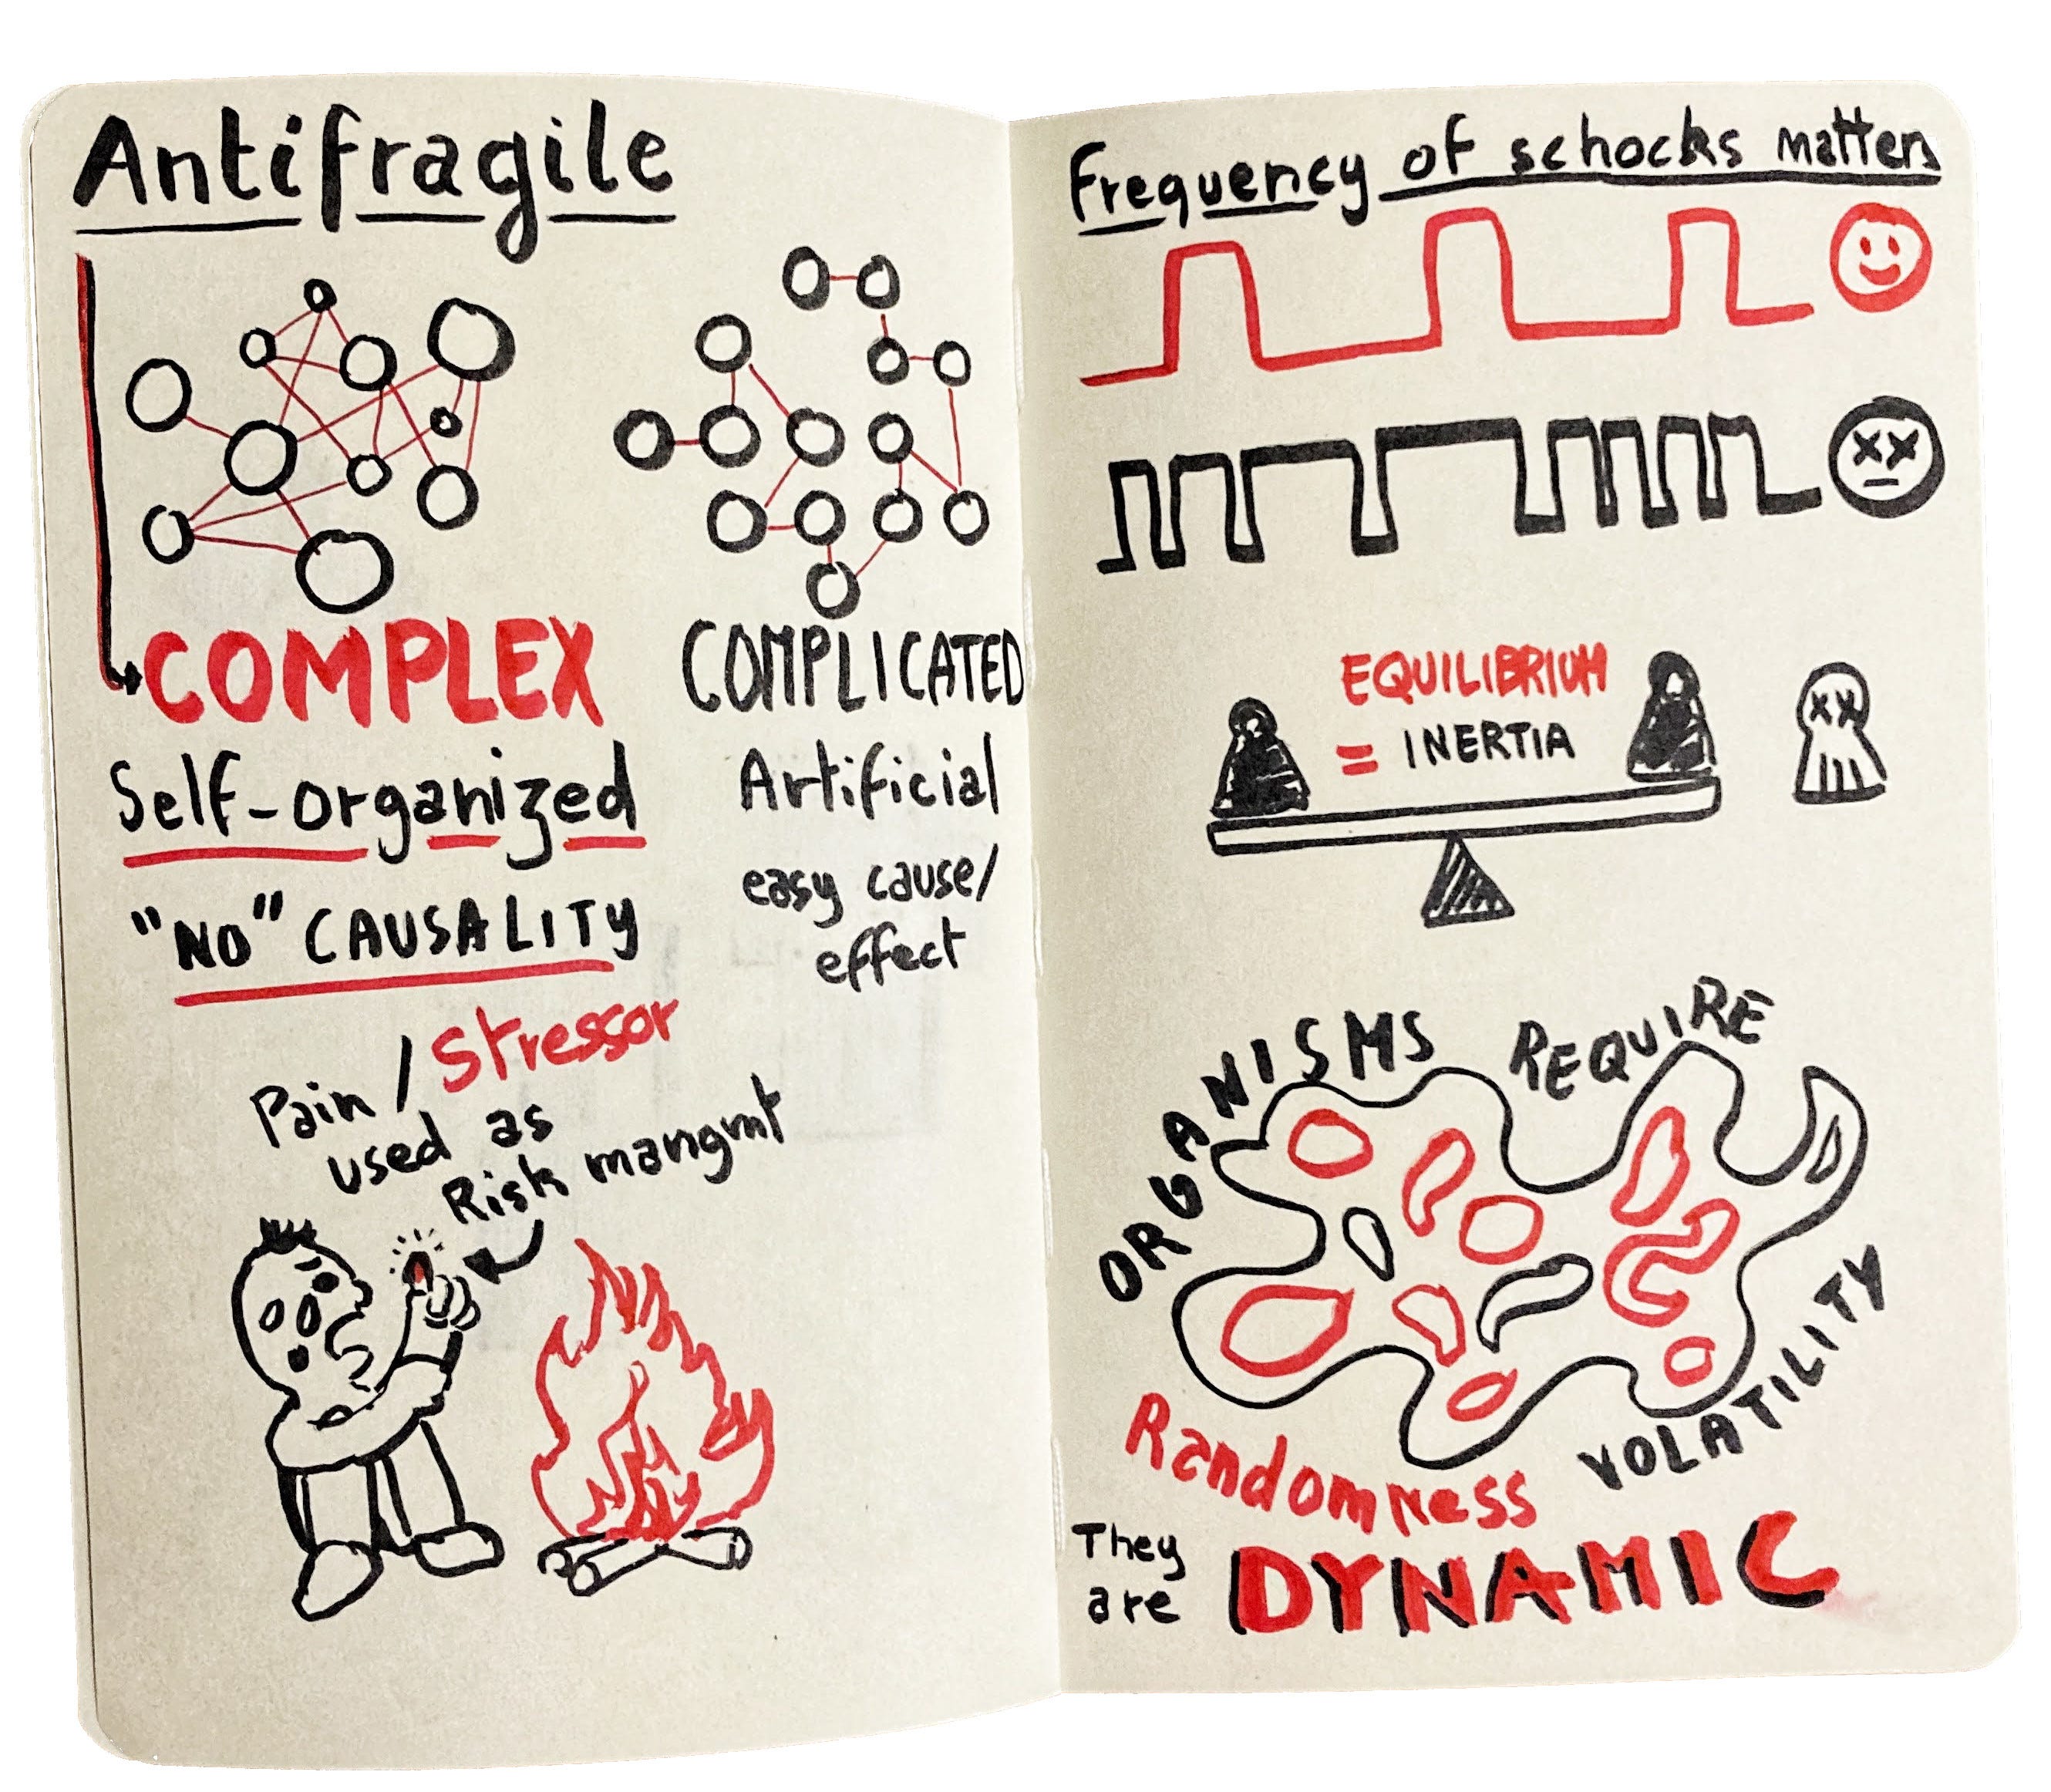 Antifragile
COMPLEX
Self-organized
"NO" CAUSALITY
COMPLICATED
Artificial
easy cause/
effect
Pain / Stressor
used as
Risk mangmt
Frequency of schocks matters
EQUILIBRIUM
= INERTIA
ORGANISMS REQUIRE
Randomness VOLATILITY
They
are DYNAMIC